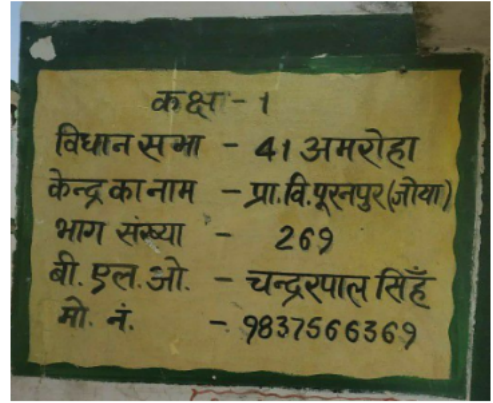 कक्षा - 1
विधान सभा - 41 अमरोहा
केन्द्र का नाम - प्रा.वि.पूरनपुर(जोया)
भाग संख्या - 269
बी. एल. ओ. - चन्द्ररपाल सिहँ
मो. नं. - 9837566369